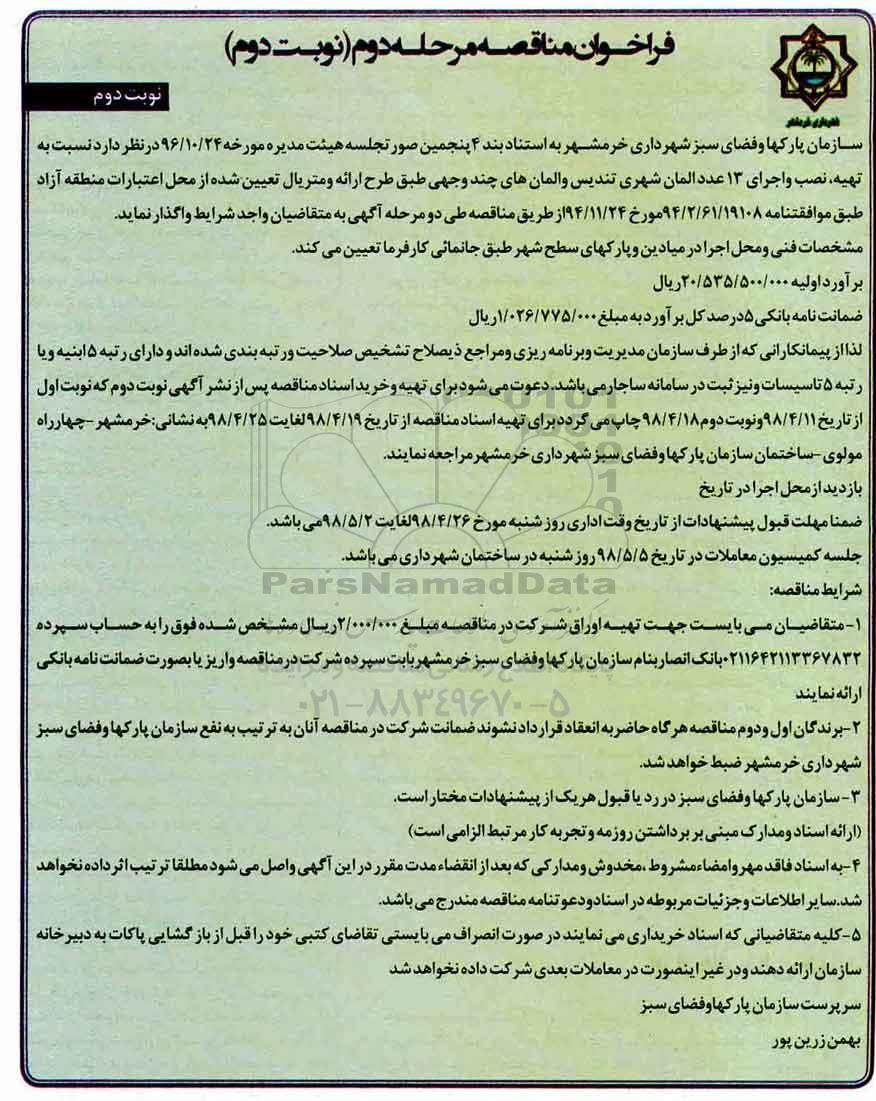 فراخوان مناقصه مرحله دوم (نوبت دوم)
نوبت دوم
شهرداری خرمشهر
سازمان پارکها وفضای سبز شهرداری خرمشهر به استناد بند ۴ پنجمین صورتجلسه هیئت مدیره مورخه ۹۶/۱۰/۲۴ درنظر دارد نسبت به
تهیه، نصب واجرای ۱۳ عدد المان شهری تندیس والمان های چند وجهی طبق طرح ارائه ومتریال تعیین شده از محل اعتبارات منطقه آزاد
طبق موافقتنامه ۹۴/۲/۶۱/۱۹۱۰۸ مورخ ۹۴/۱۱/۲۴ از طریق مناقصه طی دو مرحله آگهی به متقاضیان واجد شرایط واگذار نماید.
مشخصات فنی ومحل اجرا در میادین وپارکهای سطح شهر طبق جانمائی کارفرما تعیین می کند.
برآورد اولیه ۲۰/۵۳۵/۵۰۰/۰۰۰ ریال
ضمانت نامه بانکی ۵ درصد کل برآورد به مبلغ ۱/۰۲۶/۷۷۵/۰۰۰ ریال
لذا از پیمانکارانی که از طرف سازمان مدیریت وبرنامه ریزی ومراجع ذیصلاح تشخیص صلاحیت ورتبه بندی شده اند و دارای رتبه ۵ ابنیه ویا
رتبه ۵ تاسیسات ونیز ثبت در سامانه ساجار می باشد. دعوت می شود برای تهیه وخرید اسناد مناقصه پس از نشر آگهی نوبت دوم که نوبت اول
از تاریخ ۹۸/۴/۱۱ ونوبت دوم ۹۸/۴/۱۸ چاپ می گردد برای تهیه اسناد مناقصه از تاریخ ۹۸/۴/۱۹ لغایت ۹۸/۴/۲۵ به نشانی: خرمشهر -چهارراه
مولوی -ساختمان سازمان پارکها وفضای سبز شهرداری خرمشهر مراجعه نمایند.
بازدید از محل اجرا در تاریخ
ضمنا مهلت قبول پیشنهادات از تاریخ وقت اداری روز شنبه مورخ ۹۸/۴/۲۶ لغایت ۹۸/۵/۲ می باشد.
جلسه کمیسیون معاملات در تاریخ ۹۸/۵/۵ روز شنبه در ساختمان شهرداری می باشد.
ParsNamadData
شرایط مناقصه:
۱-متقاضیان می بایست جهت تهیه اوراق شرکت در مناقصه مبلغ ۲/۰۰۰/۰۰۰ ریال مشخص شده فوق را به حساب سپرده
۰۲۱۱۶۴۲۱۱۳۳۶۷۸۳۲ بانک انصار بنام سازمان پارکها وفضای سبز خرمشهر بابت سپرده شرکت در مناقصه واریز یا بصورت ضمانت نامه بانکی
ارائه نمایند
۰۲۱-۸۸۳۴۹۶۷۰-۵
۲-برندگان اول ودوم مناقصه هر گاه حاضر به انعقاد قرار داد نشوند ضمانت شرکت در مناقصه آنان به ترتیب به نفع سازمان پارکها وفضای سبز
شهرداری خرمشهر ضبط خواهد شد.
۳-سازمان پارکها وفضای سبز در رد یا قبول هر یک از پیشنهادات مختار است.
(ارائه اسناد ومدارک مبنی بر برداشتن روزمه وتجربه کار مرتبط الزامی است)
۴-به اسناد فاقد مهر وامضاء مشروط ،مخدوش ومدارکی که بعد از انقضاء مدت مقرر در این آگهی واصل می شود مطلقا ترتیب اثر داده نخواهد
شد.سایر اطلاعات وجزئیات مربوطه در اسناد ودعوتنامه مناقصه مندرج می باشد.
۵-کلیه متقاضیانی که اسناد خریداری می نمایند در صورت انصراف می بایستی تقاضای کتبی خود را قبل از باز گشایی پاکات به دبیرخانه
سازمان ارائه دهند ودر غیر اینصورت در معاملات بعدی شرکت داده نخواهد شد
سرپرست سازمان پارکهاوفضای سبز
بهمن زرین پور